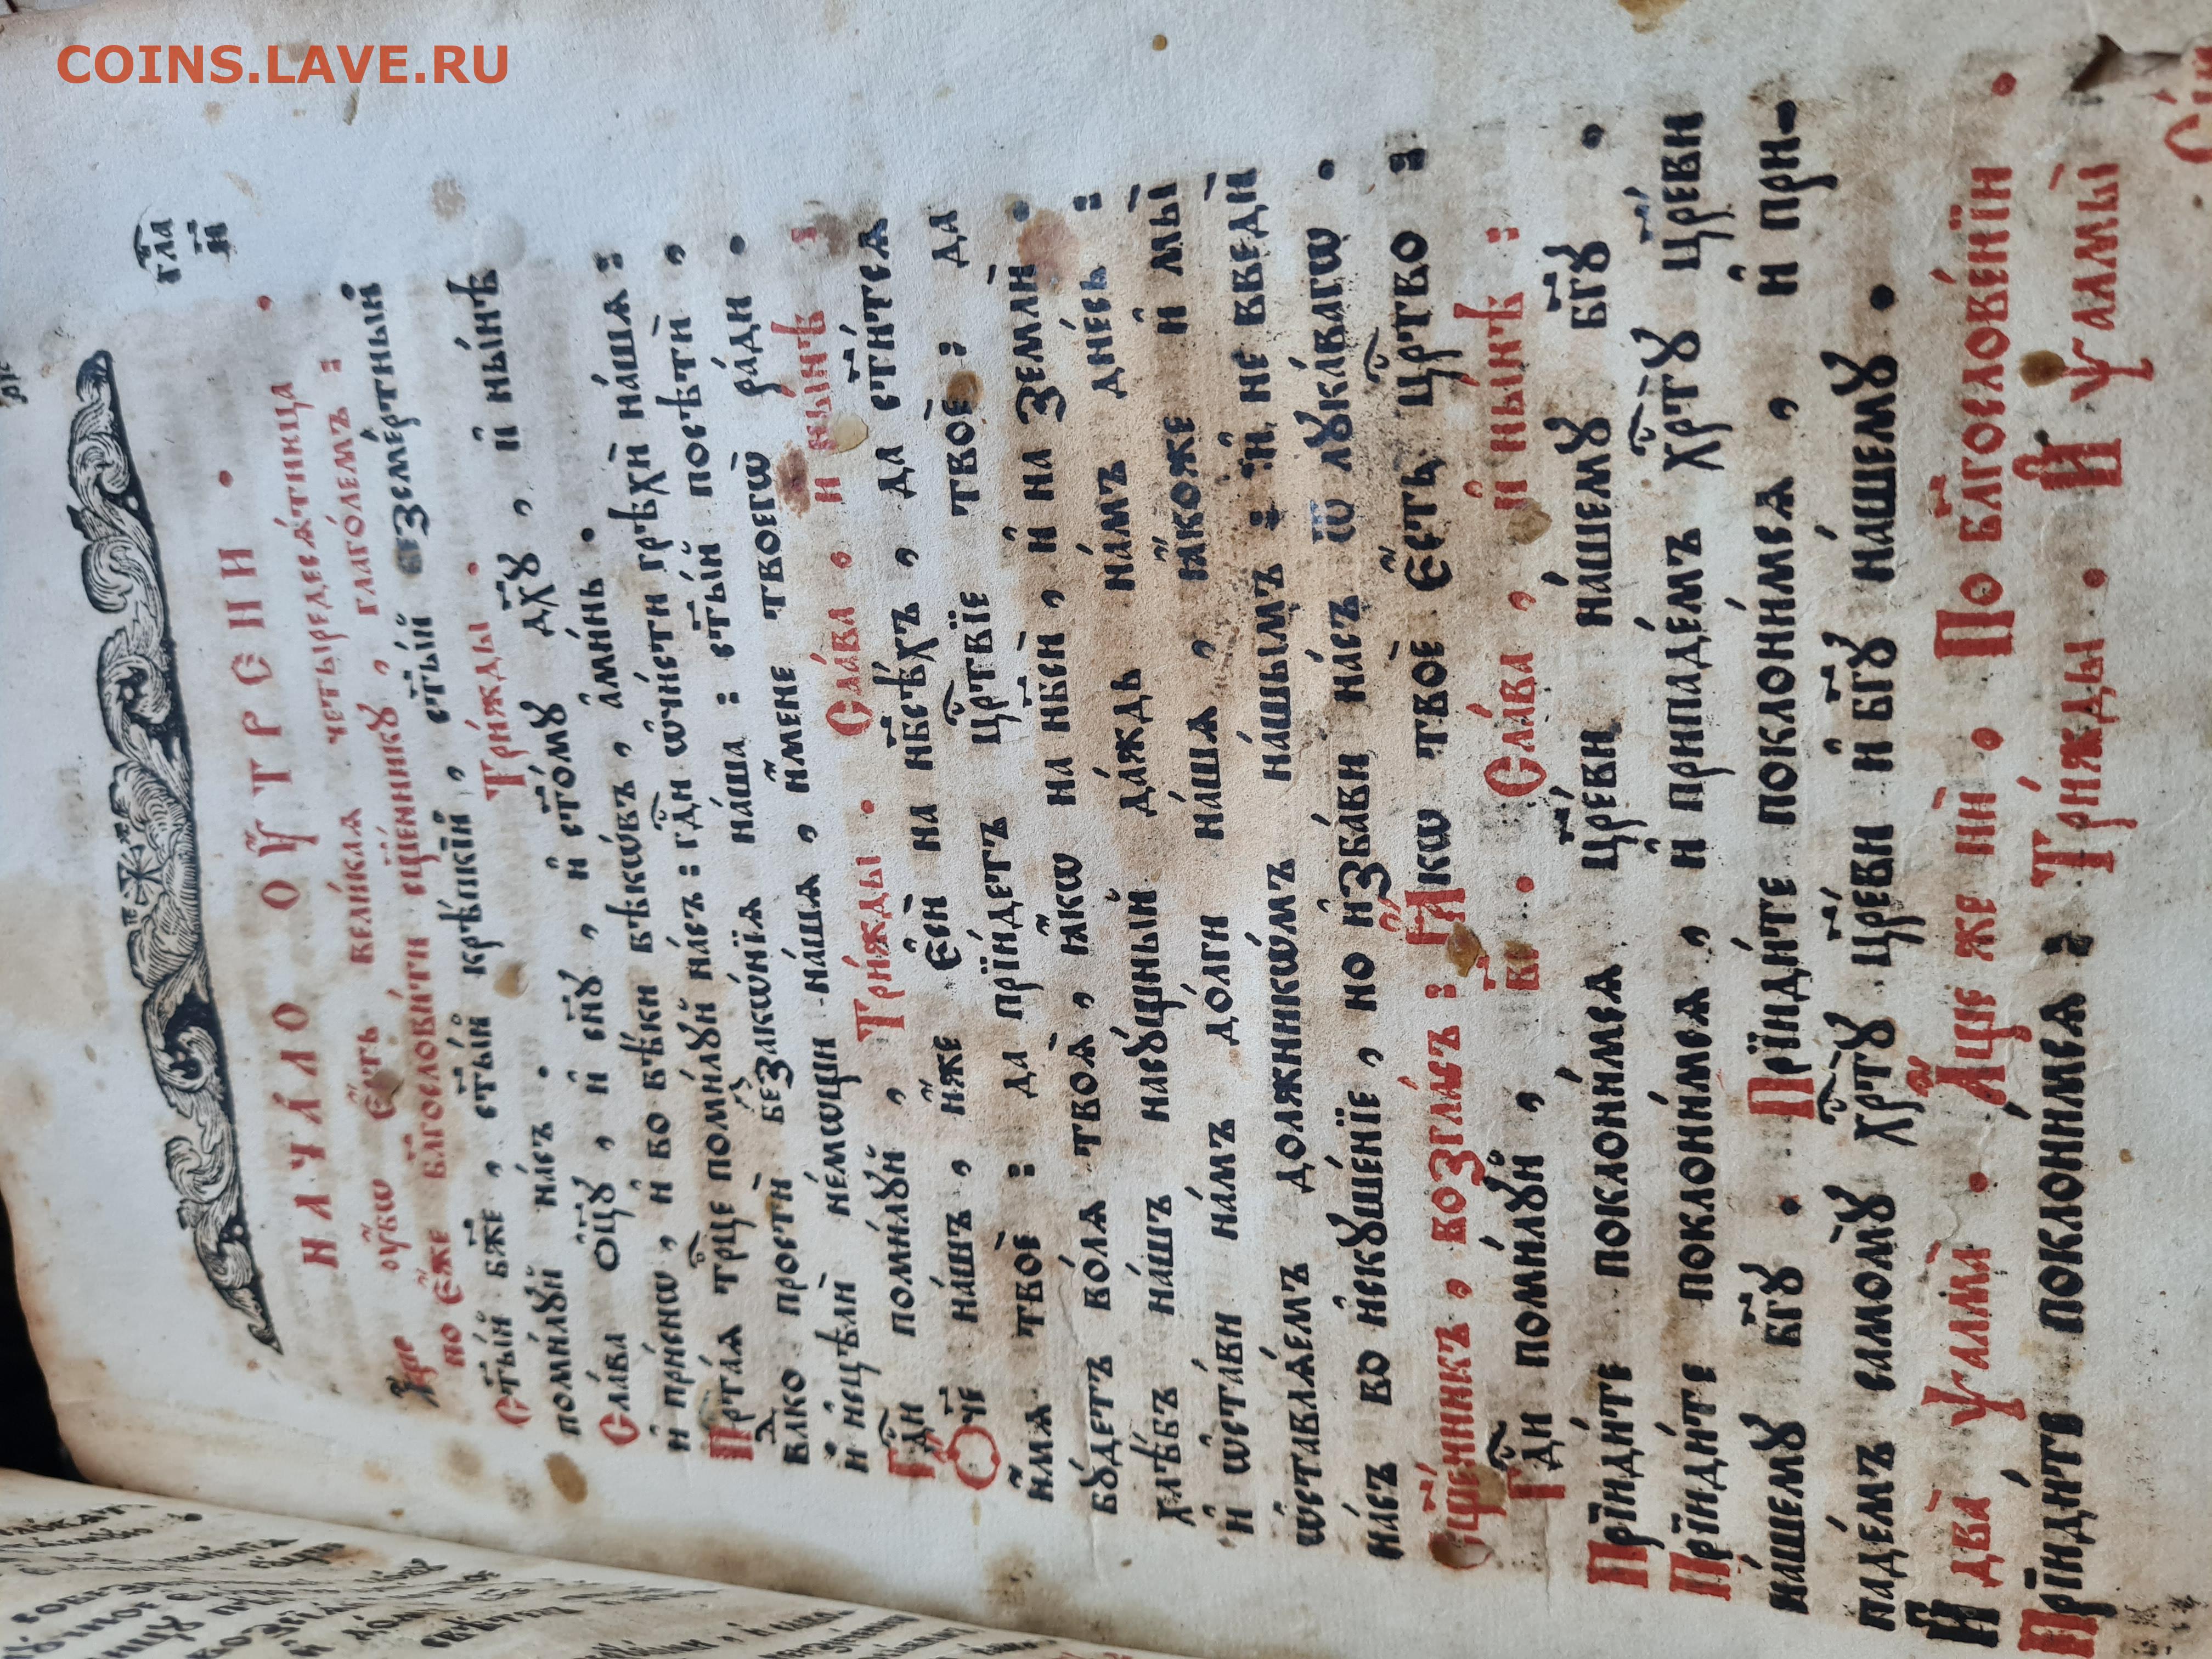 COINS.LAVE.RU
гл҃а
и҃
НАЧА́ЛО ОУ҆́ТРЕНИ .
а҆́ще ᲂу҆́бѡ є҆́сть вели́каѧ четыредесѧ́тница .
по є҆́же бл҃гослови́ти сщ҃е́нникꙋ , глаго́лемъ :
Ст҃ы́й бж҃е , ст҃ы́й крѣ́пкїй , ст҃ы́й безсме́ртный
поми́лꙋй на́съ . Три́жды .
Сла́ва ѻ҆ц҃ꙋ̀ , и҆ сн҃ꙋ , и҆ ст҃о́мꙋ дх҃ꙋ , и҆ ны́нѣ
и҆ при́снѡ , и҆ во вѣ́ки вѣкѡ́въ , а҆ми́нь .
Прⷭ҇та́ѧ трⷪ҇це поми́лꙋй на́съ : гдⷭ҇и ѡ҆чи́сти грѣхѝ на́шѧ :
влⷣко простѝ беззакѡ́нїѧ на́ша : ст҃ы́й посѣтѝ ,
и҆ и҆сцѣлѝ не́мѡщи на́шѧ , и҆́мене твоегѡ̀ ра́ди .
Гдⷭ҇и поми́лꙋй , Три́жды . Сла́ва , и҆ ны́нѣ :
Ѻ҆́ч҃е на́шъ , и҆́же є҆сѝ на нб҃сѣ́хъ , да ст҃и́тсѧ
и҆́мѧ твоѐ : да прїи́детъ црⷭ҇твїе твоѐ : да
бꙋ́детъ во́лѧ твоѧ̀ , ꙗ҆́кѡ на нб҃сѝ , и҆ на землѝ .
хлѣ́бъ на́шъ насꙋ́щный да́ждь на́мъ дне́сь :
и҆ ѡ҆ста́ви на́мъ до́лги на́шѧ , ꙗ҆́коже и҆ мы̀
ѡ҆ставлѧ́емъ должникѡ́мъ на́шымъ : и҆ не введѝ
на́съ во и҆скꙋше́нїе , но и҆зба́ви на́съ ѿ лꙋка́вагѡ .
Сщ҃е́нникъ , возгла́съ : Ꙗ҆́кѡ твоѐ є҆́сть црⷭ҇тво :
Гдⷭ҇и поми́лꙋй , в҃і . Сла́ва , и҆ ны́нѣ :
Прїиди́те поклони́мсѧ цр҃е́ви на́шемꙋ бг҃ꙋ .
Прїиди́те поклони́мсѧ , и҆ припаде́мъ хрⷭ҇тꙋ̀ цр҃е́ви
на́шемꙋ бг҃ꙋ . Прїиди́те поклони́мсѧ , и҆ при-
паде́мъ самомꙋ̀ хрⷭ҇тꙋ̀ цр҃е́ви и҆ бг҃ꙋ на́шемꙋ .
И҆ два̀ ѱалма̀ . А҆́ще же нѝ . По бл҃гослове́нїи .
Прїиди́те поклони́мсѧ : Три́жды . И҆ ѱалмы̀